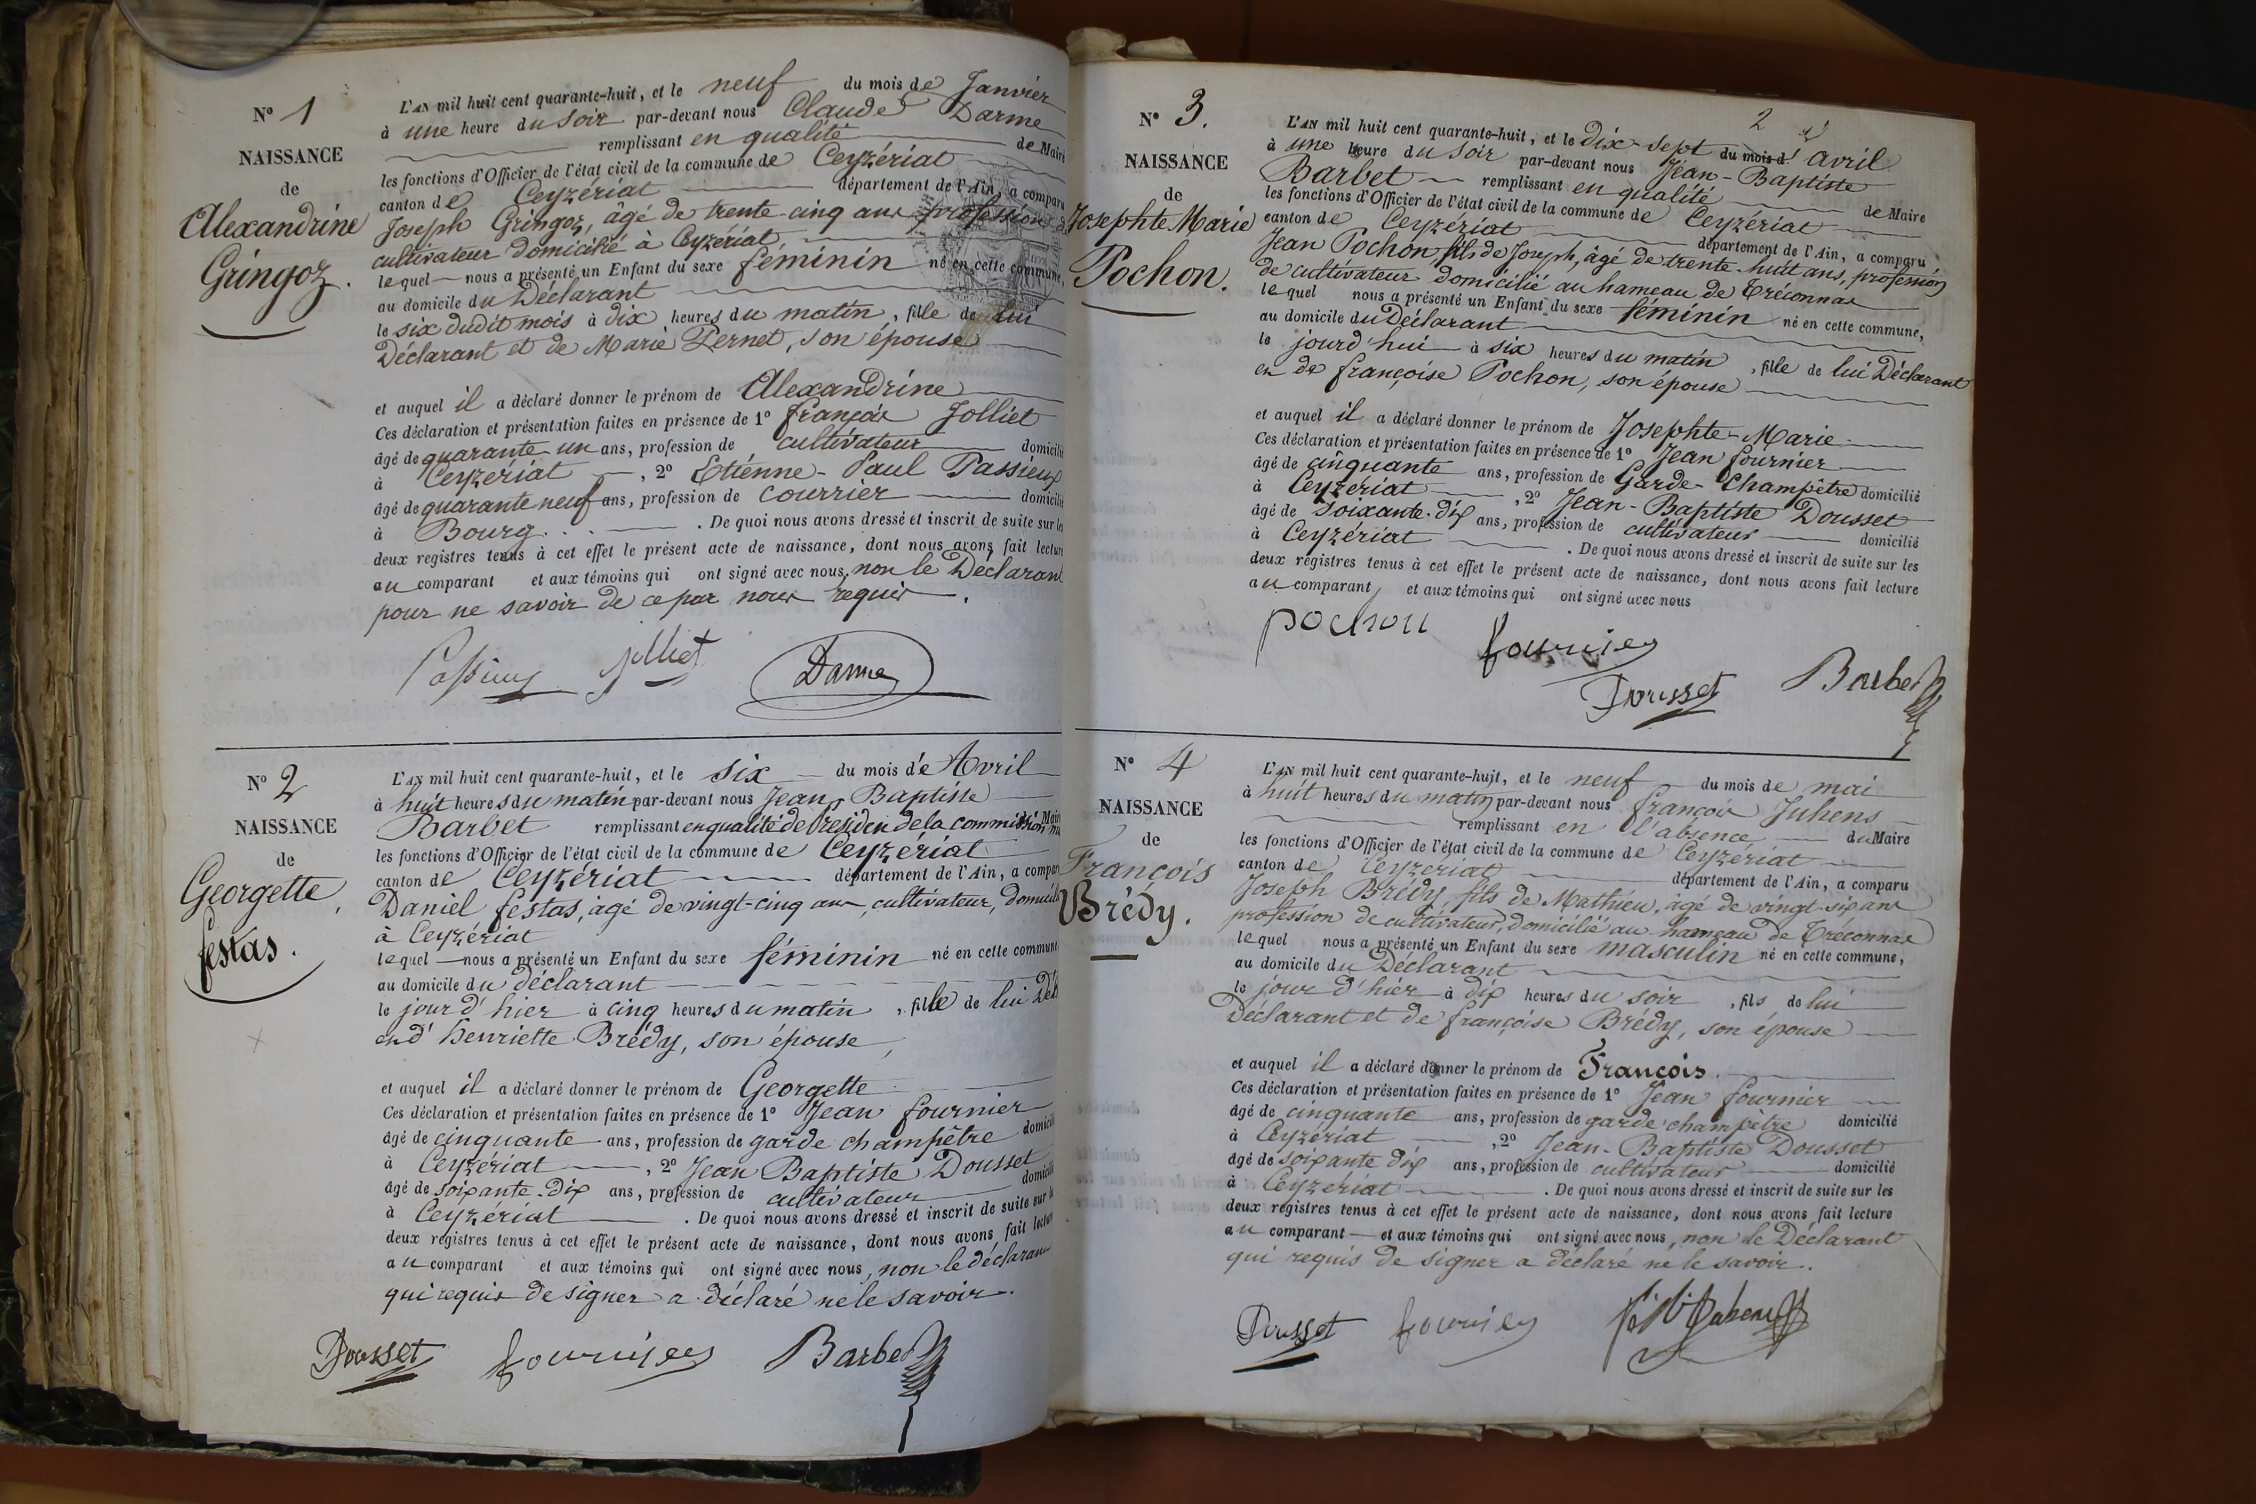 N° 1
NAISSANCE
de
Alexandrine
Gringoz.
L'AN mil huit cent quarante-huit, et le neuf du mois de Janvier
à une heure du soir par-devant nous Claude Darme
remplissant en qualité de Maire
les fonctions d'Officier de l'état civil de la commune de Ceyzériat
canton de Ceyzériat département de l'Ain, a comparu
Joseph Gringoz, âgé de trente-cinq ans profession de
cultivateur domicilié à Ceyzériat
lequel nous a présenté un Enfant du sexe féminin né en cette commune,
au domicile du Déclarant
le six dudit mois à dix heures du matin, fille de lui
Déclarant et de Marie Pernet, son épouse
et auquel il a déclaré donner le prénom de Alexandrine
Ces déclaration et présentation faites en présence de 1° françois Jolliet
âgé de quarante un ans, profession de cultivateur domicilié
à Ceyzériat, 2° Etiénne-Paul Passieux
âgé de quarante neuf ans, profession de courrier domicilié
à Bourg. . . . De quoi nous avons dressé et inscrit de suite sur les
deux registres tenus à cet effet le présent acte de naissance, dont nous avons fait lecture
au comparant et aux témoins qui ont signé avec nous, non le Déclarant
pour ne savoir de ce par nous requis.
Passieux Jolliet Darme
N° 2
NAISSANCE
de
Georgette,
festas.
L'AN mil huit cent quarante-huit, et le six du mois de Avril
à huit heures du matin par-devant nous Jean Baptiste
Barbet remplissant en qualité de Présiden de la commission
les fonctions d'Officier de l'état civil de la commune de Ceyzeriat
canton de Ceyzeriat département de l'Ain, a comparu
Daniel festas, âgé de vingt-cinq ans, cultivateur, domicilié
à Ceyzériat
lequel nous a présenté un Enfant du sexe féminin né en cette commune
au domicile du déclarant
le jour d'hier à cinq heures du matin, fille de lui Déc
et d'henriette Brédy, son épouse,
et auquel il a déclaré donner le prénom de Georgette
Ces déclaration et présentation faites en présence de 1° Jean fournier
âgé de cinquante ans, profession de garde champêtre domicilié
à Ceyzériat, 2° Jean Baptiste Dousset
âgé de soixante-dix ans, profession de cultivateur domicilié
à Ceyzériat. De quoi nous avons dressé et inscrit de suite sur les
deux registres tenus à cet effet le présent acte de naissance, dont nous avons fait lecture
au comparant et aux témoins qui ont signé avec nous, non le déclarant
qui requis de signer a déclaré ne le savoir.
Dousset fournier Barbet
2
N° 3.
NAISSANCE
de
Josephte Marie
Pochon.
L'AN mil huit cent quarante-huit, et le dix-sept du mois d' avril
à une heure du soir par-devant nous Jean-Baptiste
Barbet remplissant en qualité de Maire
les fonctions d'Officier de l'état civil de la commune de Ceyzériat
canton de Ceyzériat département de l'Ain, a comparu
Jean Pochon, fils de Joseph, âgé de trente-huit ans, profession
de cultivateur domicilié au hameau de Tréconnas
lequel nous a présenté un Enfant du sexe féminin né en cette commune,
au domicile du Déclarant
le jourd'hui à six heures du matin, fille de lui Déclarant
et de françoise Pochon, son épouse
et auquel il a déclaré donner le prénom de Josephte-Marie
Ces déclaration et présentation faites en présence de 1° Jean fournier
âgé de cinquante ans, profession de Garde-Champêtre domicilié
à Ceyzériat, 2° Jean-Baptiste Dousset
âgé de soixante-dix ans, profession de cultivateur domicilié
à Ceyzériat. De quoi nous avons dressé et inscrit de suite sur les
deux registres tenus à cet effet le présent acte de naissance, dont nous avons fait lecture
au comparant, et aux témoins qui ont signé avec nous
pochon fournier
Dousset Barbet
N° 4
NAISSANCE
de
François
Brédy.
L'AN mil huit cent quarante-huit, et le neuf du mois de mai
à huit heures du matin par-devant nous françois Juhens
remplissant en l'absence du Maire
les fonctions d'Officier de l'état civil de la commune de Ceyzériat
canton de Ceyzériat département de l'Ain, a comparu
Joseph Brédy, fils de Mathieu, âgé de vingt-six ans
profession de cultivateur, domicilié au hameau de Tréconnas
lequel nous a présenté un Enfant du sexe masculin né en cette commune,
au domicile du Déclarant
le jour d'hier à dix heures du soir, fils de lui
Déclarant et de françoise Brédy, son épouse
et auquel il a déclaré donner le prénom de François.
Ces déclaration et présentation faites en présence de 1° Jean fournier
âgé de cinquante ans, profession de garde champêtre domicilié
à Ceyzériat, 2° Jean-Baptiste Dousset
âgé de soixante dix ans, profession de cultivateur domicilié
à Ceyzériat. De quoi nous avons dressé et inscrit de suite sur les
deux registres tenus à cet effet le présent acte de naissance, dont nous avons fait lecture
au comparant et aux témoins qui ont signé avec nous, non le Déclarant
qui requis de signer a déclaré ne le savoir.
Dousset fournier